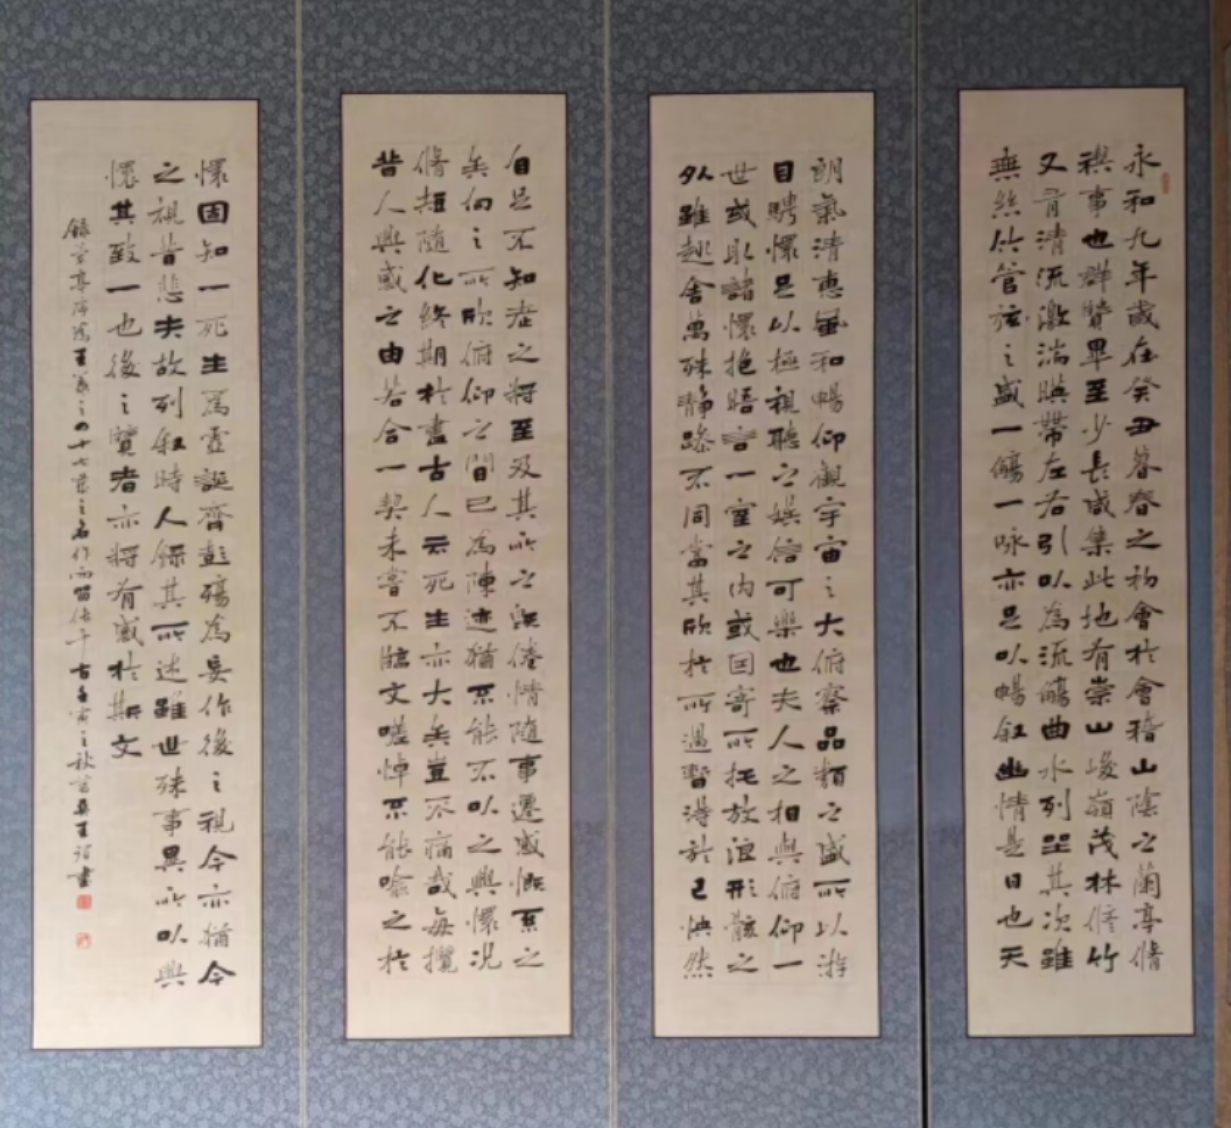 永和九年歲在癸丑暮春之初會於會稽山陰之蘭亭脩
禊事也群賢畢至少長咸集此地有崇山峻嶺茂林修竹
又有清流激湍暎帶左右引以為流觴曲水列坐其次雖
無絲竹管弦之盛一觴一詠亦足以暢叙幽情是日也天
朗氣清惠風和暢仰觀宇宙之大俯察品類之盛所以遊
目騁懷足以極視聽之娛信可樂也夫人之相與俯仰一
世或取諸懷抱晤言一室之內或因寄所託放浪形骸之
外雖趣舍萬殊靜躁不同當其欣於所遇暫得於己怏然
自足不知老之將至及其所之既倦情隨事遷感慨系之
矣向之所欣俯仰之間已為陳迹猶不能不以之興懷況
脩短隨化終期於盡古人云死生亦大矣豈不痛哉每攬
昔人興感之由若合一契未嘗不臨文嗟悼不能喻之於
懷固知一死生為虛誕齊彭殤為妄作後之視今亦猶今
之視昔悲夫故列叙時人錄其所述雖世殊事異所以興
懷其致一也後之覽者亦將有感於斯文
錄蘭亭序為王羲之四十七歲之名作而留傳千古壬寅之秋書